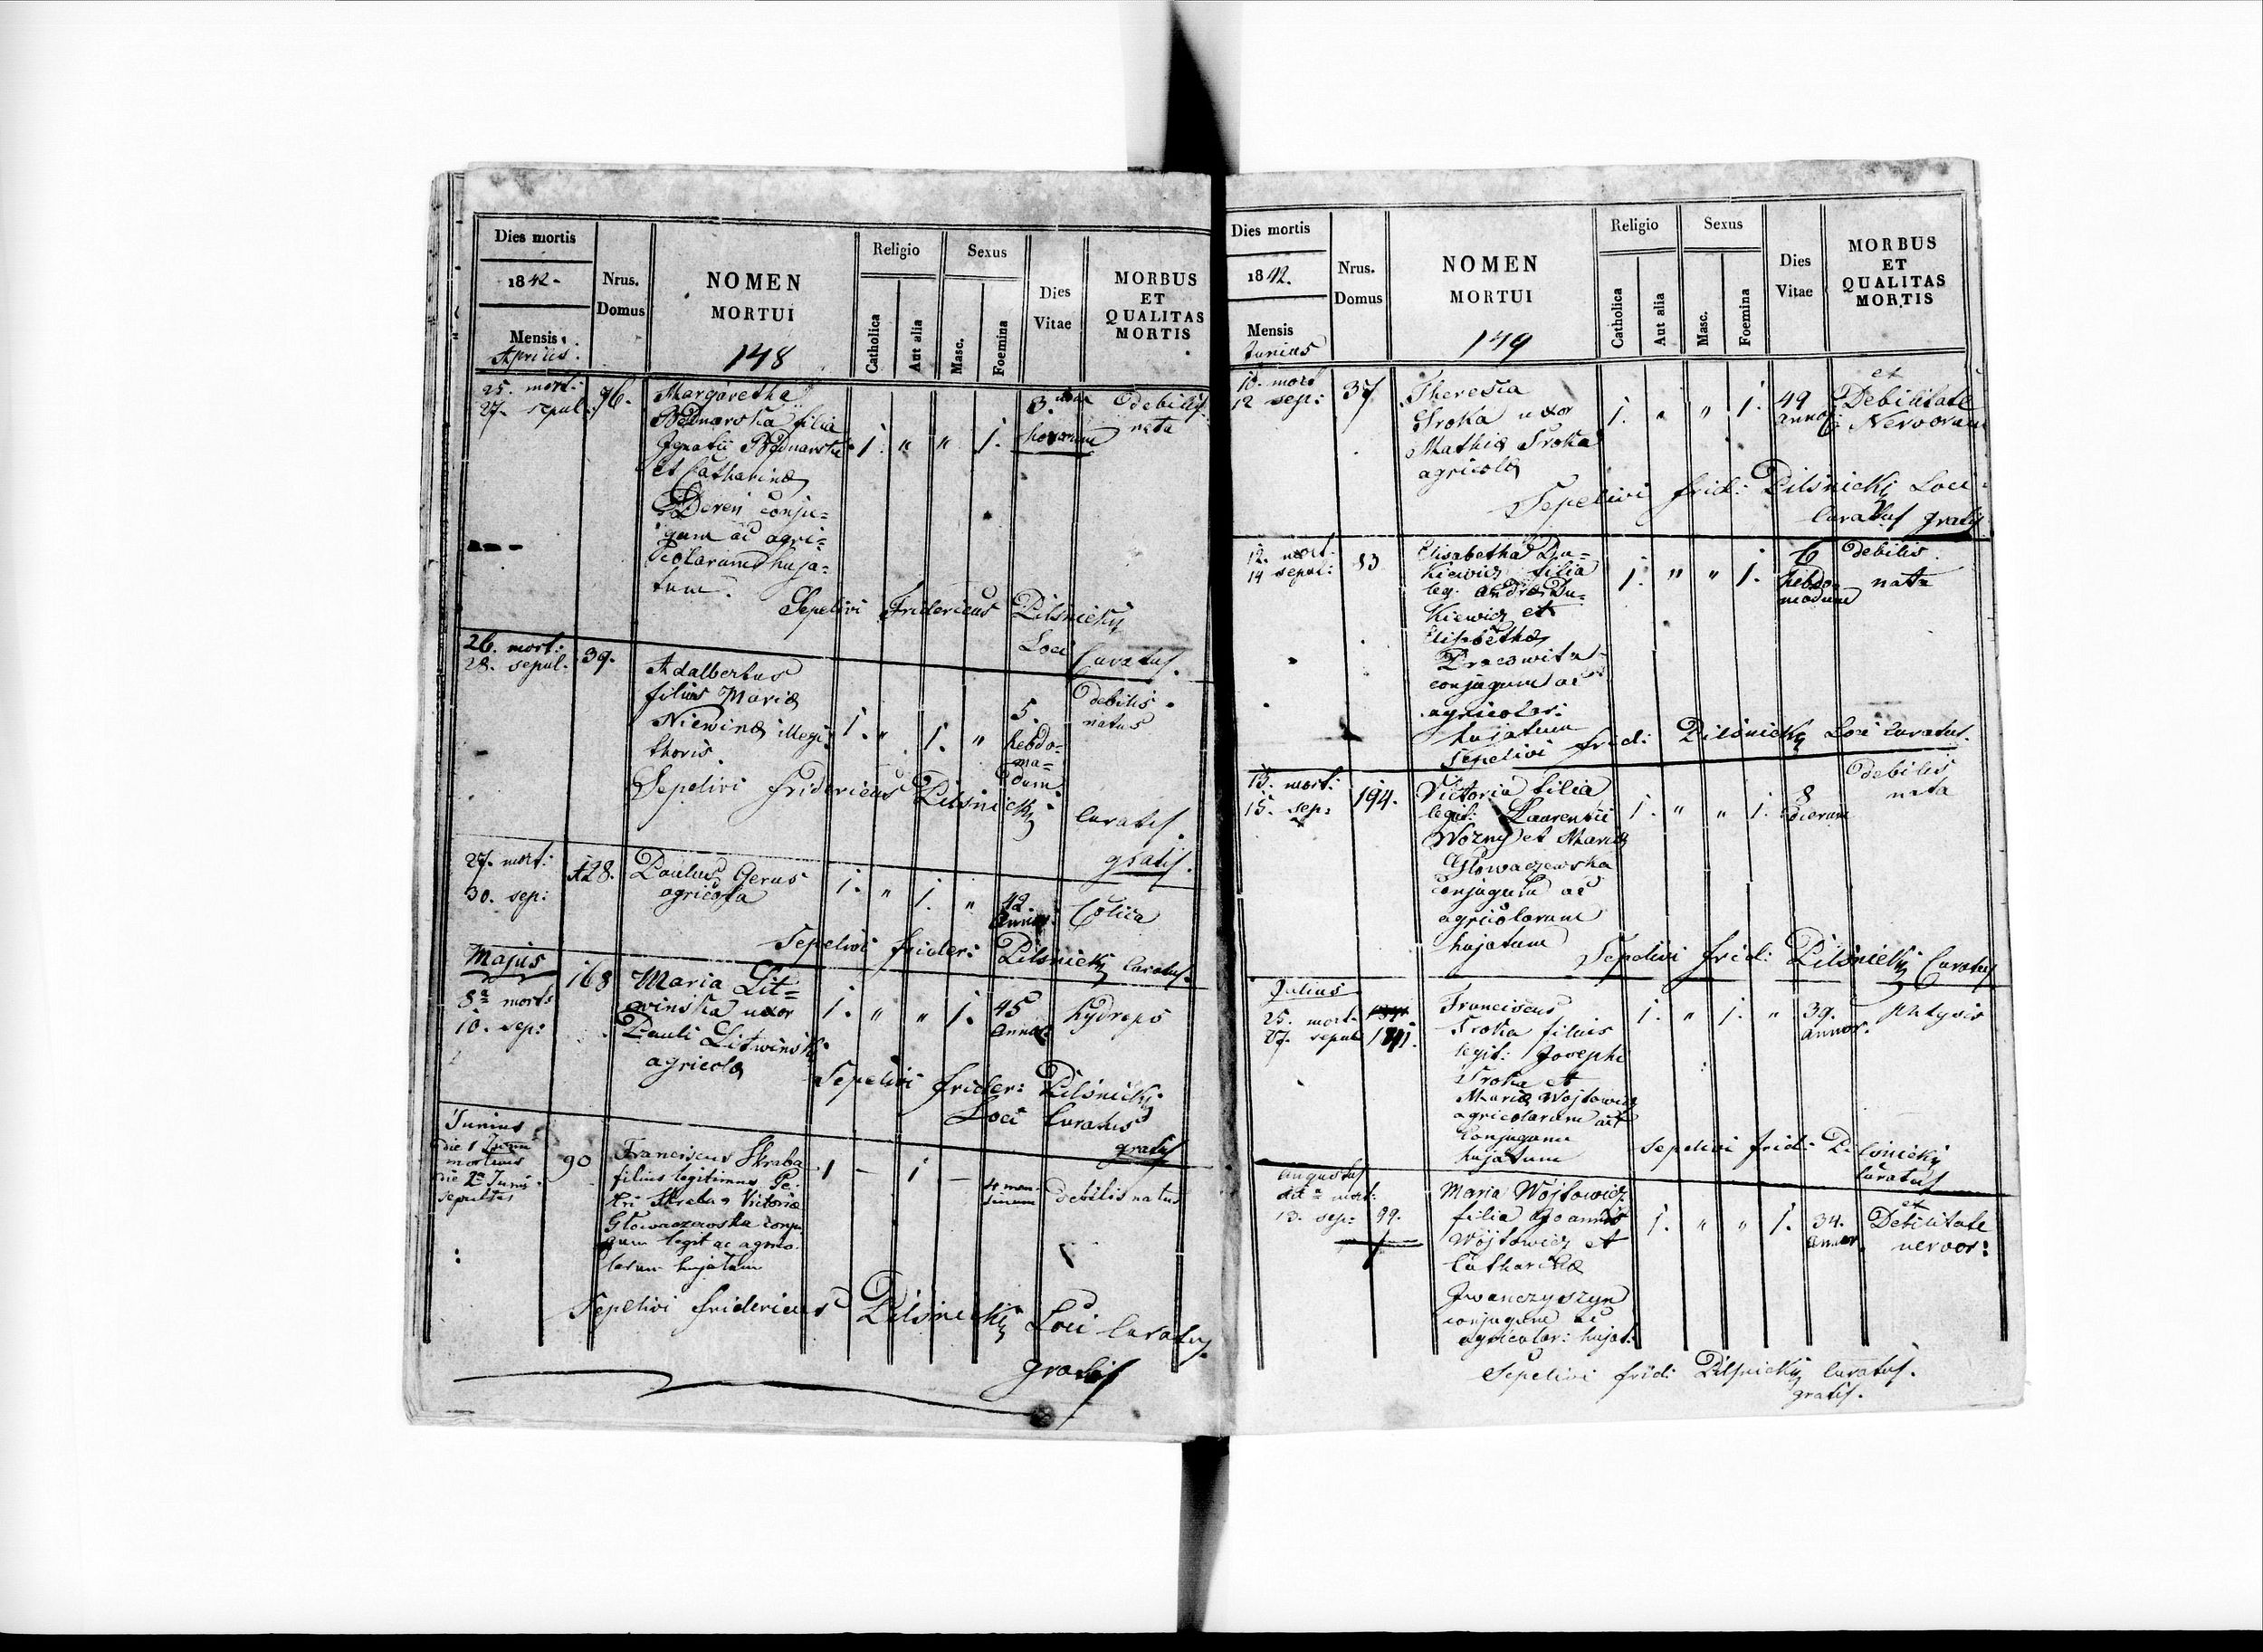 Dies mortis
1842.
Mensis
Aprilis.
Nrus.
Domus
NOMEN
MORTUI
148
Religio
Catholica
Aut alia
Sexus
Masc.
Foemina
Dies
Vitae
MORBUS
ET
QUALITAS
MORTIS
25. mort:
27. sepul:
76.
Margaretha
Bednarska filia
Ignatii Bednarski
et Catharinæ
Deren conju=
gum ac agri=
colarum huja=
tum.
1. " " 1.
3.
horarum
debilis
nata
Sepelivi Fridericus Pilsnicky
Loci Curatus.
26. mort:
28. sepul.
39.
Adalbertus
filius Mariæ
Niewinæ illegi:
thoris.
1. " 1. "
5.
hebdo=
ma=
dum
debilis
natus
Sepelivi Fridericus Pilsnicky
Curatus.
gratis.
27. mort:
30. sep:
128.
Paulus Gerus
agricola
1. " 1. "
42
annor:
Colica
Sepelivi frider: Pilsnicky Curatus.
Majus
8a mort:
10. sep:
168
Maria Lit=
winska uxor
Pauli Litwinski
agricolæ
1. " " 1.
45
annor
hydrops
Sepelivi frider: Pilsnicky
Loci Curatus
gratis
Junius
die 1 Junii
mortuus
die 2a Junii
sepultus
90
Franciscus Skraba
filius legitimus Pe:
tri Skraba & Victoriæ
Głowaczewska conju
gum legit ac agrico
larum hujatum
1 — 1 —
4 men
sium
debilis natus
Sepelivi Fridericus Pilsnicky Loci Curatus
gratis
Dies mortis
1842.
Mensis
Junius
Nrus.
Domus
NOMEN
MORTUI
149
Religio
Catholica
Aut alia
Sexus
Masc.
Foemina
Dies
Vitae
MORBUS
ET
QUALITAS
MORTIS
10. mort
12 sep:
37
Theresia
Sroka uxor
Mathiæ Sroka
agricolæ
1. " " 1.
49
annor:
ex
Debilitate
Nervorum
Sepelivi frid: Pilsnicky Loci
Curatus gratis
12. mort:
14 sepul:
83
Elisabetha Du=
kiewicz filia
leg. Andreæ Du=
kiewicz et
Elisabethæ
conjugum ac
agricolar:
hujatum
1. " " 1.
6
hebdo=
madum
debilis
nata
Sepelivi frid: Pilsnicky Loci Curatus.
13. mort:
15. sep:
194.
Victoria filia
legit: Laurentii
Wozny et Mariæ
Głowaczewska
conjugum ac
agricolarum
hujatum
1. " " 1.
8
dierum
debilis
nata
Sepelivi frid: Pilsnicky Curatus
Julius
25. mort.
27. sepul
Franciscus
Sroka filius
legit: Josephi
Sroka et
Mariæ Wojtowicz
agricolarum act
Conjugum
hujatum
1. " 1. "
39.
annor.
phtysis
Sepelivi frid: Pilsnicky
Curatus
Augustus
mort:
13. sep:
99.
Maria Wojtowicz
filia Joannis
Wojtowicz et
Catharinæ
Iwanczyszyn
conjugum ac
agricolar: hujat:
1. " " 1.
34.
annor.
ex
Debilitate
nervor:
Sepelivi frid: Pilsnicky Curatus.
gratis.